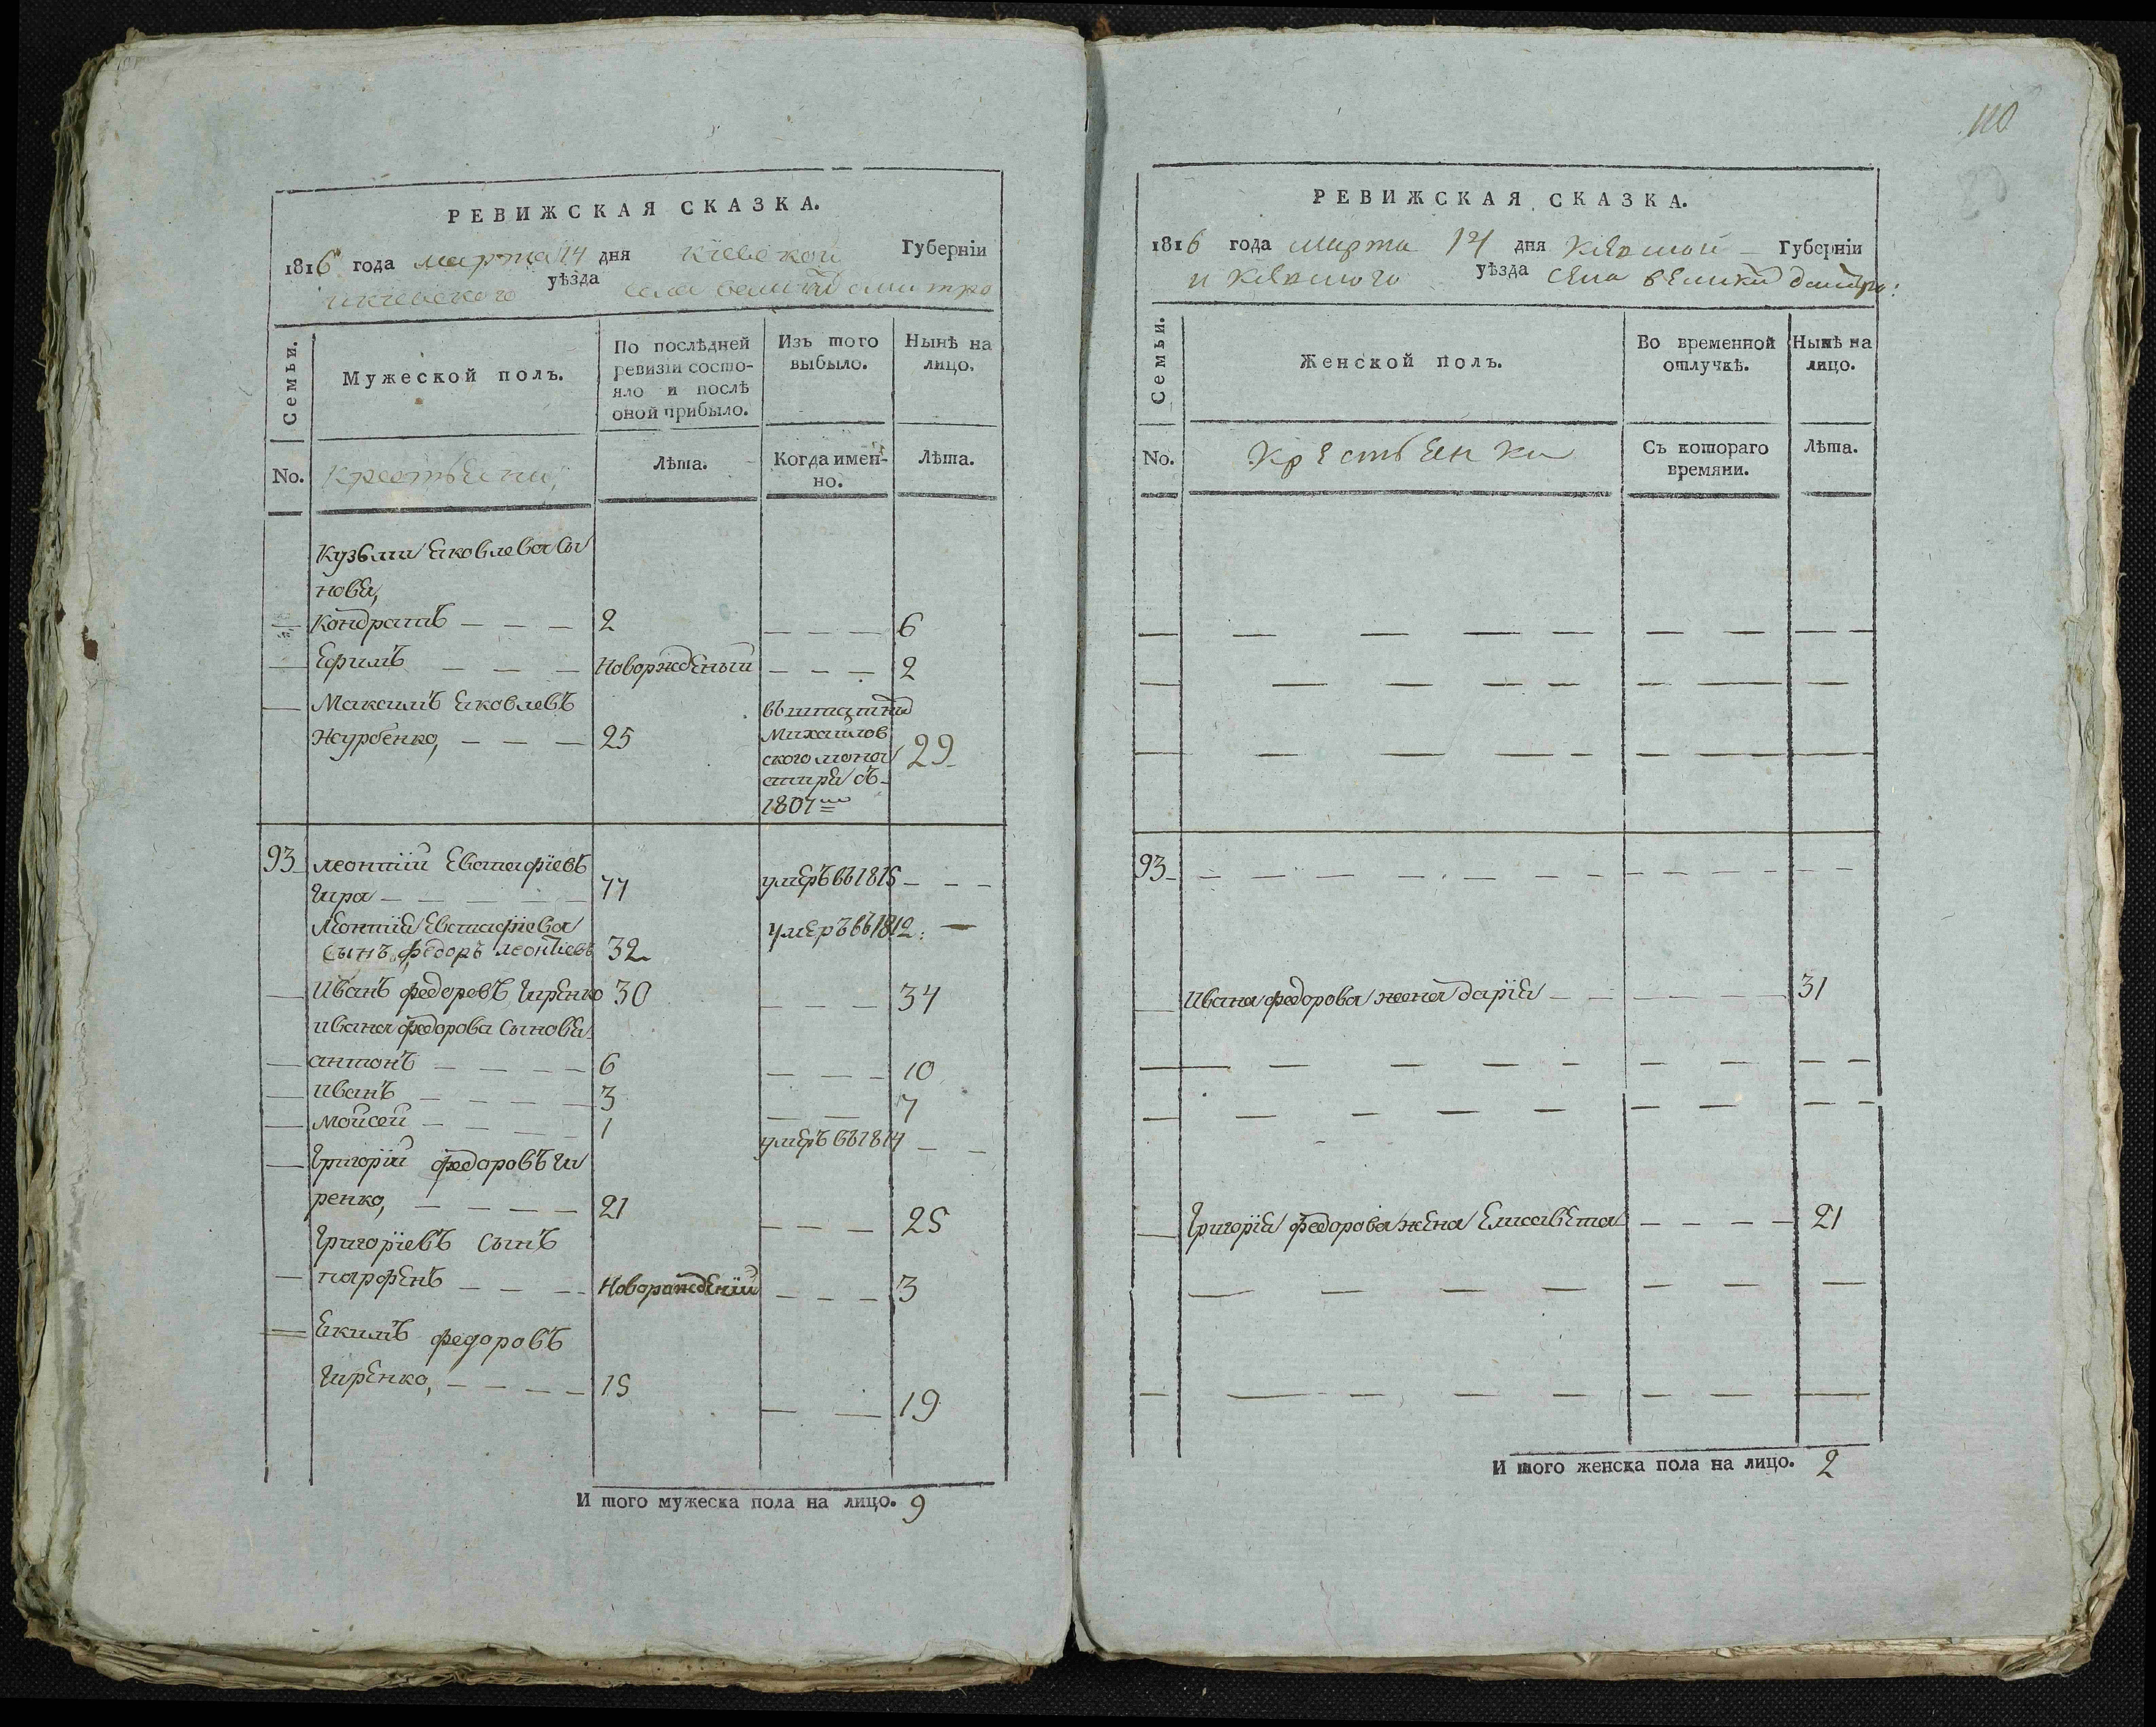 РЕВИЖСКАЯ СКАЗКА.
1816 года марта 14 дня Киевской Губерніи
и киевского уѣзда села велик дмитро
Семьи.
Мужеской полъ.
По послѣдней ревизіи состо-
яло и послѣ
оной прибыло.
Изъ того
выбыло.
Нынѣ на
лицо.
No.
крестьяни,
Лѣта.
Когда имен-
но.
Лѣта.
Кузьми Яковлева сы
новя,
— Кондратъ — — — 2 — — — 6
— Ефимъ — — — Новорожденый — — — 2
— Максимъ Яковлевъ
Журбенко, — — — 25
въ штатни
Михаилов
ского мона
стиря съ
1807го
29
93 леонтій Евстафіевъ
Гира — — — — 77 умеръ въ 1815 — — —
Леонтія Евстафіева
сынъ, федоръ леонтіевъ 32 умеръ въ 1812: —
— Иванъ федоровъ Гиренко 30 — — 34
ивана федорова сыновя
— антонъ — — — — 6 — — — 10
— иванъ — — — — 3 — — 7
— мойсей — — — — 1 умеръ въ 1814 — —
— Григорій федоровъ Ги
ренко, — — — — 21 — — — 25
Григоріевъ сынъ
— парфенъ — — — Новорожденій — — — 3
— Якимъ федоровъ
Гиренко, — — — — 15 — — 19
И того мужеска пола на лицо. 9
110
РЕВИЖСКАЯ СКАЗКА.
1816 года Марта 14 дня Киевской Губерніи
и Киевского уѣзда села великй дмитро:
Семьи.
Женской полъ.
Во временной
отлучкѣ.
Нынѣ на
лицо.
No.
Крестьянки
Съ котораго
времяни.
Лѣта.
93 — — — — — — — —
— Ивана федорова жена дарія — — — — — 31
— Григорія федорова жена Елисавета — — — — 21
И того женска пола на лицо. 2